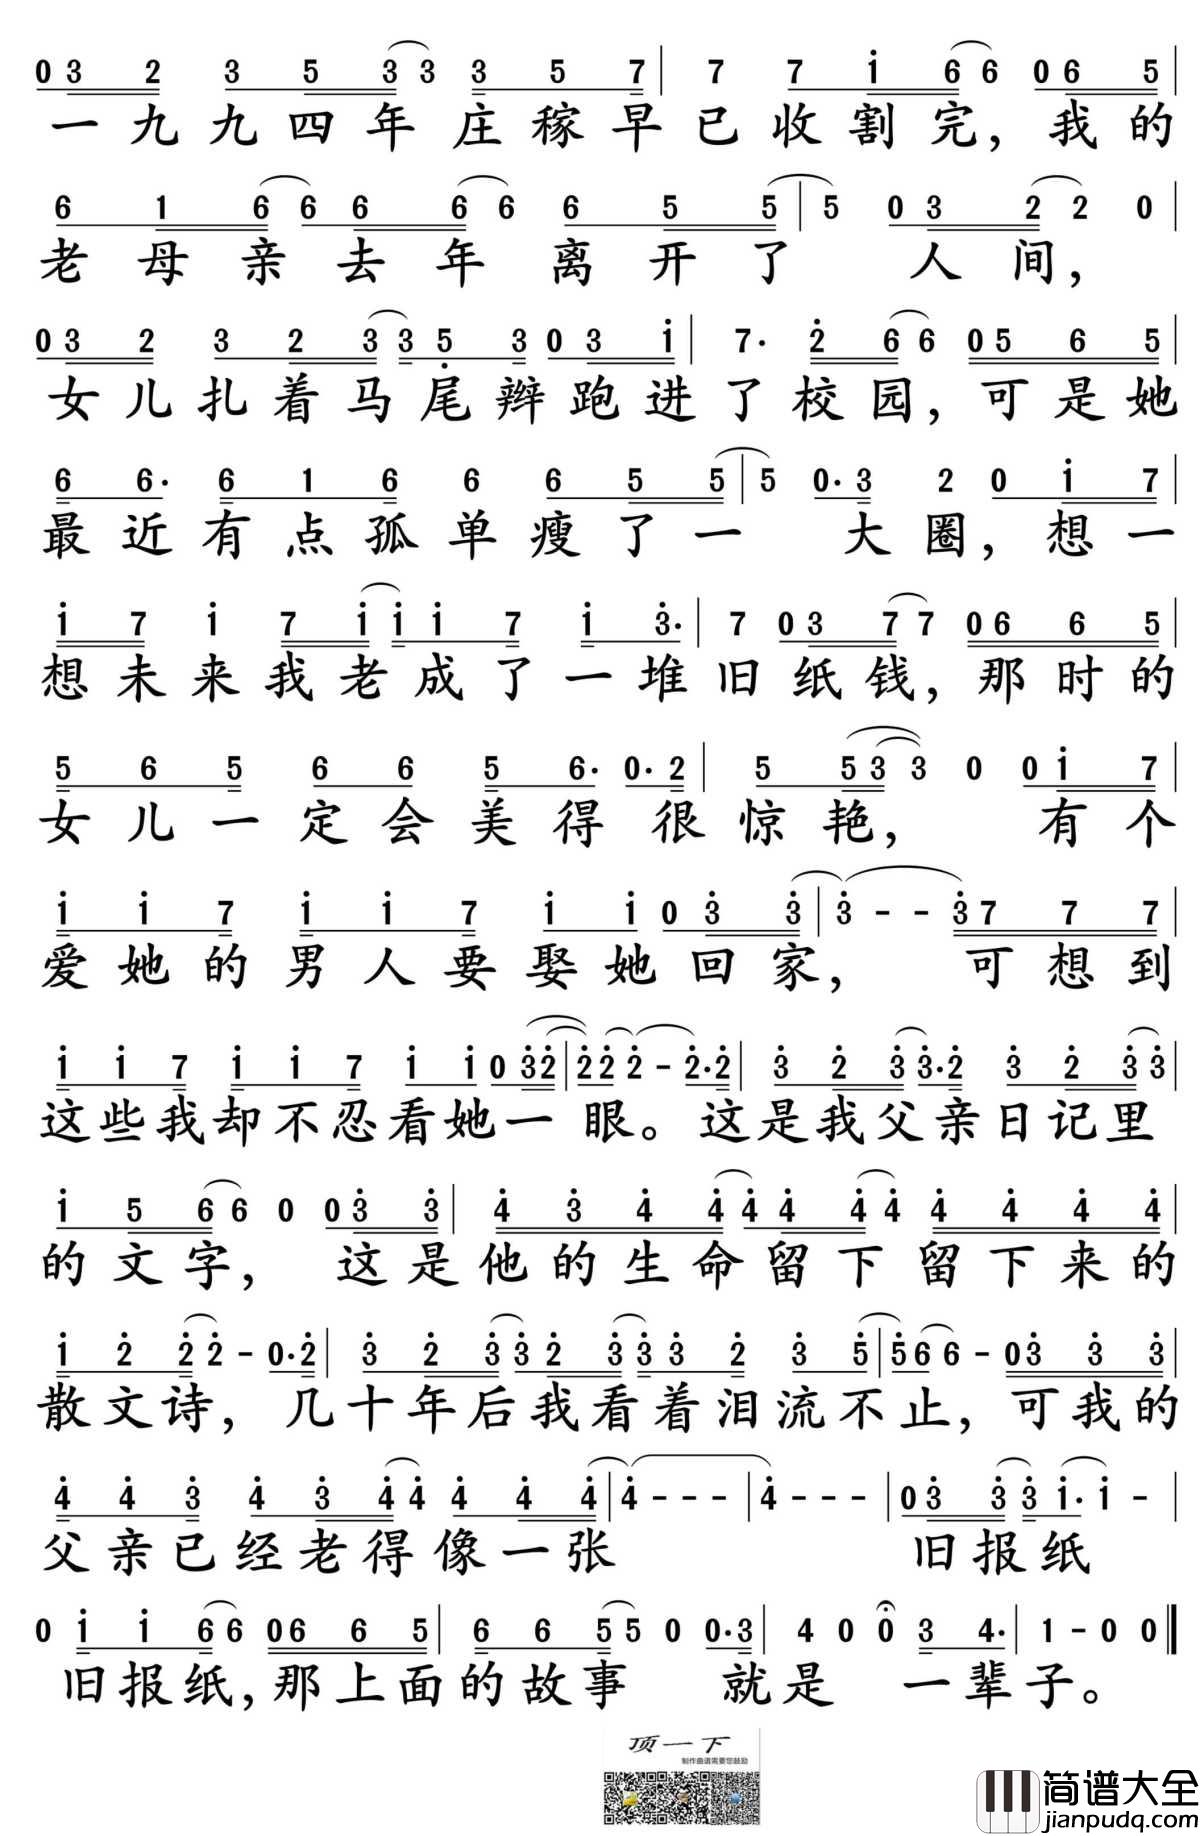 0 3 2 3 5 3 3 3 5 7 | 7 7 1 6 6 0 6 5 |
一九九四年庄稼早已收割完，我的
6 1 6 6 6 6 6 6 5 5 | 5 0 3 2 2 0 |
老母亲去年离开了 人间，
0 3 2 3 2 3 3 5 3 0 3 1 | 7· 2 6 6 0 5 6 5 |
女儿扎着马尾辫跑进了校园，可是她
6 6· 6 1 6 6 6 5 5 | 5 0· 3 2 0 1 7 |
最近有点孤单瘦了一 大圈，想一
1 7 1 7 1 1 1 7 1 3· | 7 0 3 7 7 0 6 6 5 |
想未来我老成了一堆旧纸钱，那时的
5 6 5 6 6 5 6· 0· 2 | 5 5 3 3 0 0 1 7 |
女儿一定会美得很惊艳， 有个
1 1 7 1 1 7 1 1 0 3 3 | 3 - - 3 7 7 7 |
爱她的男人要娶她回家， 可想到
1 1 7 1 1 7 1 1 0 3 2 | 2 2 2 - 2· 2 | 3 2 3 3· 2 3 2 3 3 |
这些我却不忍看她一眼。这是我父亲日记里
1 5 6 6 0 0 3 3 | 4 3 4 4 4 4 4 4 4 4 4 4 |
的文字， 这是他的生命留下留下来的
1 2 2 2 - 0· 2 | 3 2 3 3 2 3 3 3 2 3 5 | 5 6 6 - 0 3 3 3 |
散文诗，几十年后我看着泪流不止，可我的
4 4 3 4 3 4 4 4 4 4 | 4 - - - | 4 - - - | 0 3 3 3 1· 1 - |
父亲已经老得像一张 旧报纸
0 1 1 6 6 0 6 6 5 | 6 6 5 5 0 0· 3 | 4 0 0 3 4· | 1 - 0 0 ‖
旧报纸，那上面的故事 就是 一辈子。
顶一下
制作曲谱需要您鼓励
简谱大全
jianpudq.com